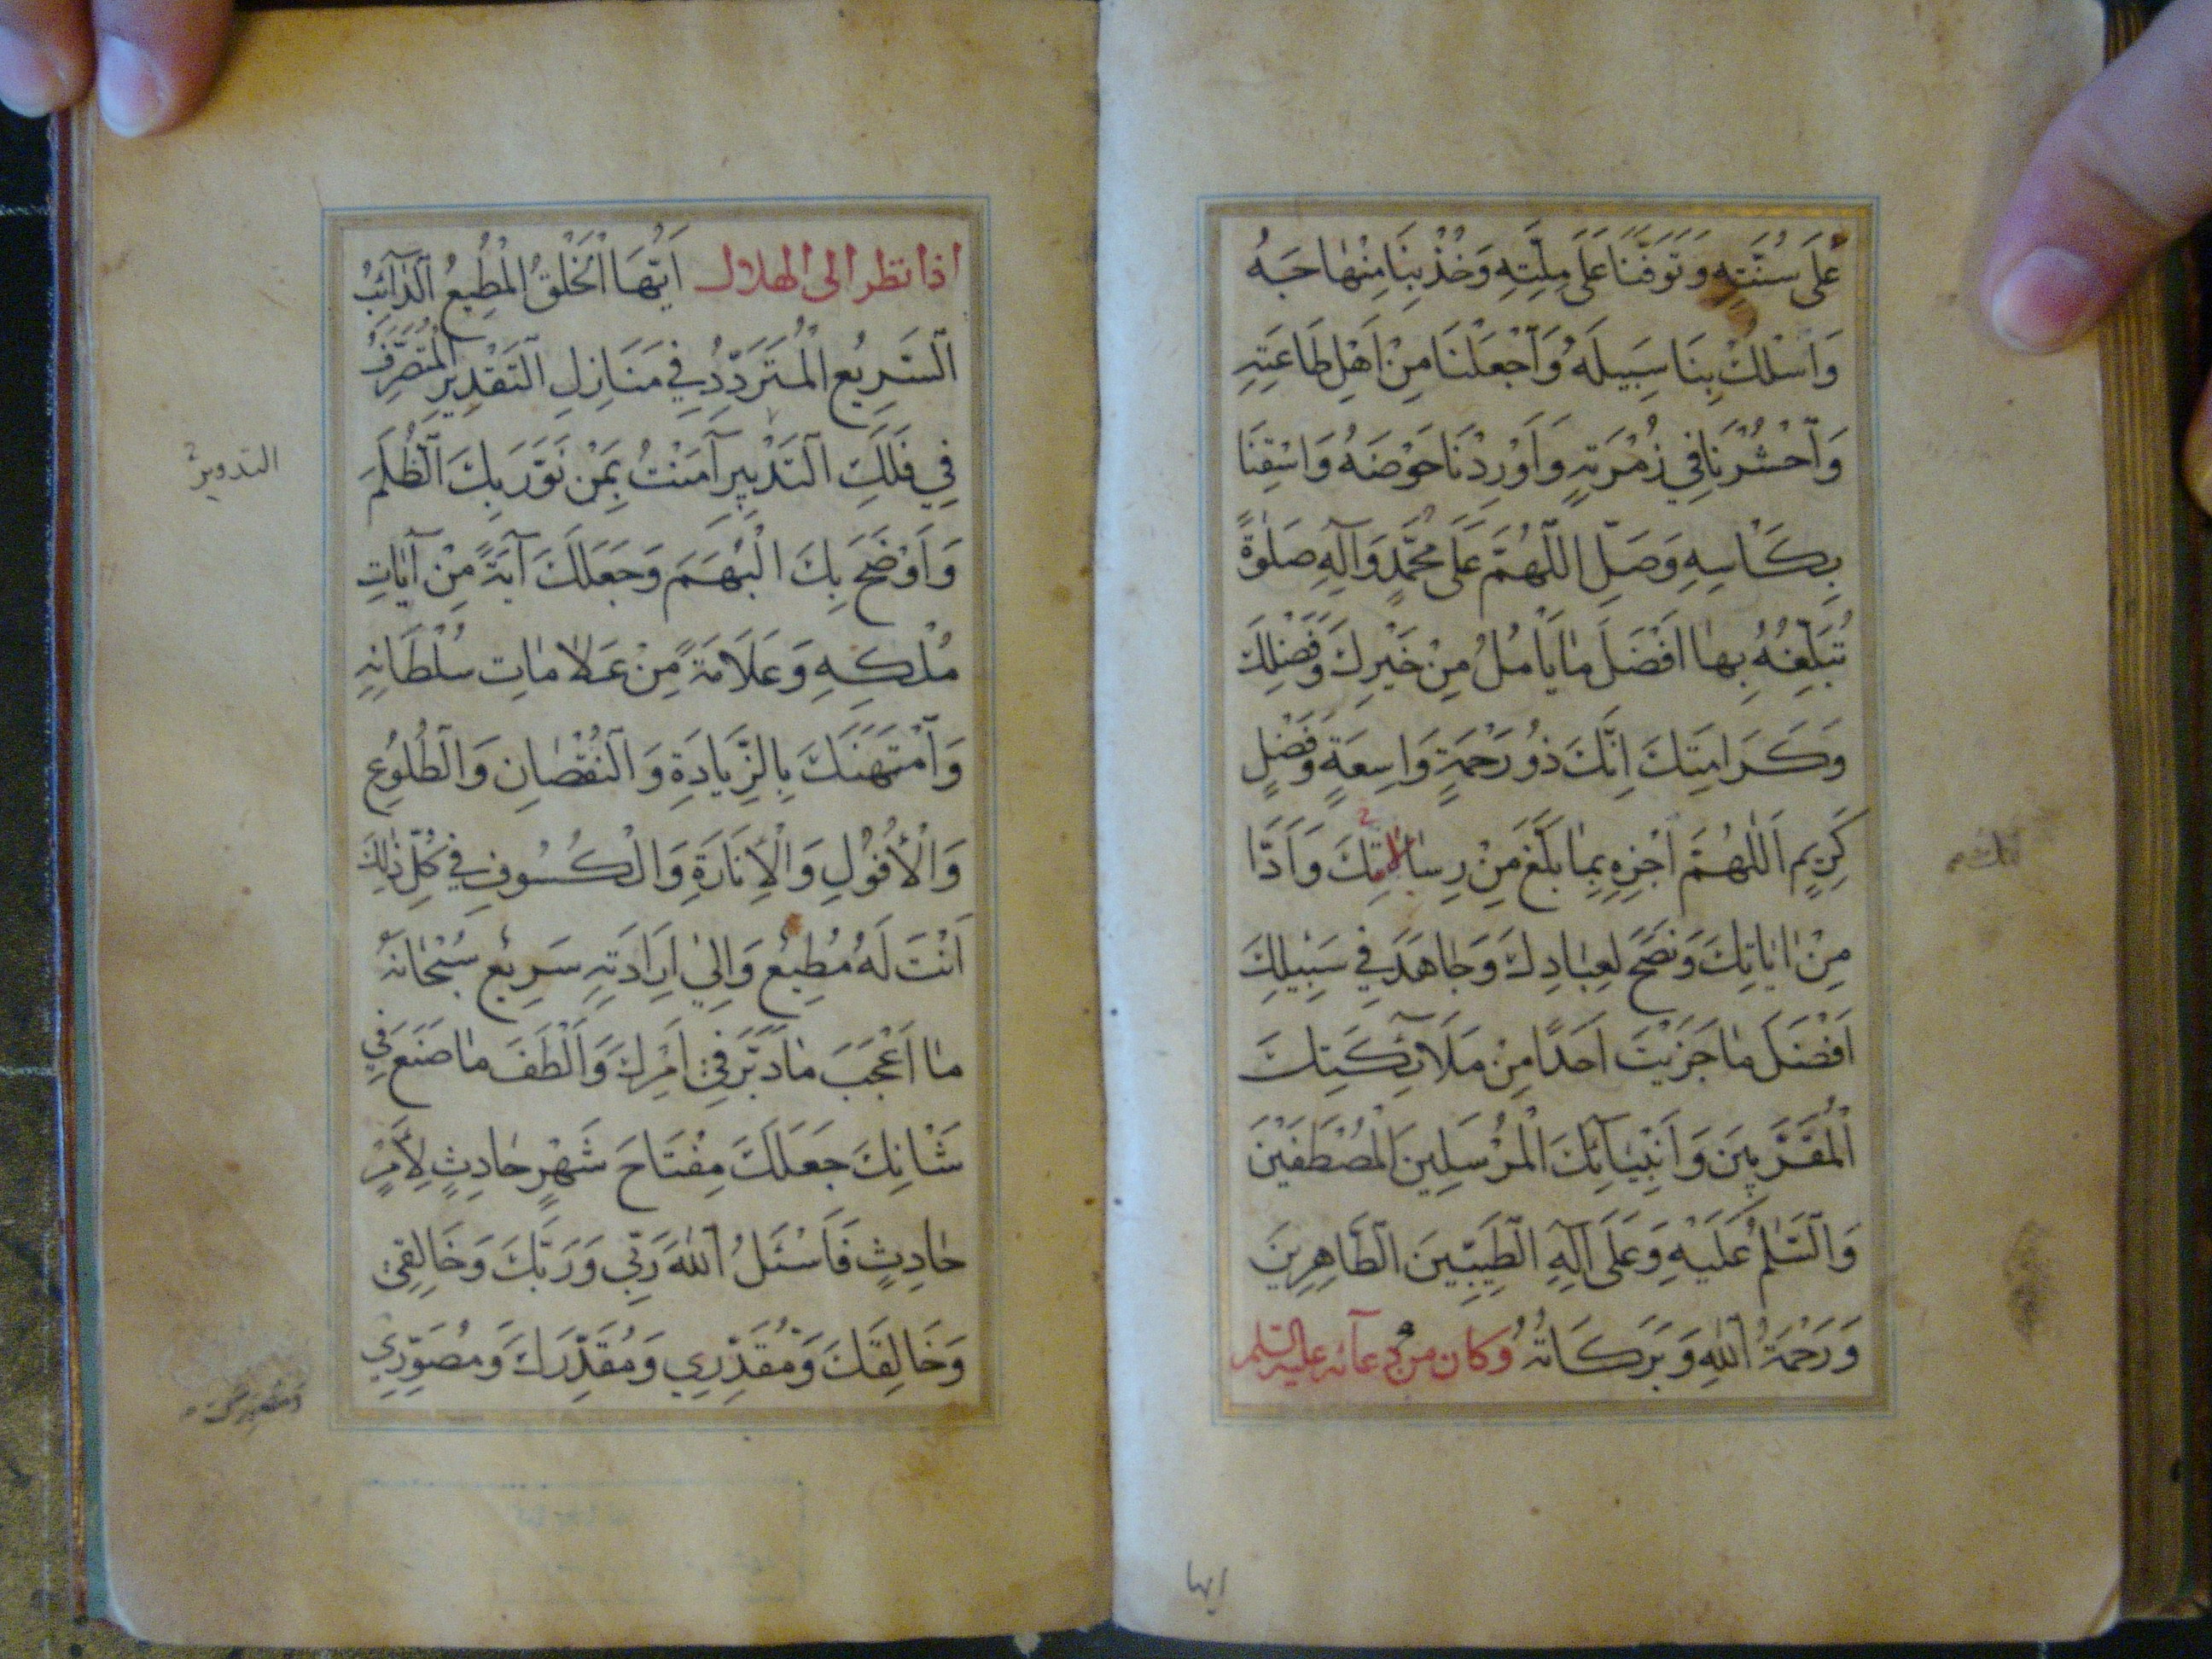 عَلَى سُنَّتِهِ وَتَوَفَّنَا عَلَى مِلَّتِهِ وَخُذْ بِنَا مِنْهَاجَهُ
وَاسْلُكْ بِنَا سَبِيلَهُ وَاجْعَلْنَا مِنْ اَهْلِ طَاعَتِهِ
وَاحْشُرْنَا فِي زُمْرَتِهِ وَاَوْرِدْنَا حَوْضَهُ وَاسْقِنَا
بِكَاْسِهِ وَصَلِّ اللّٰهُمَّ عَلَى مُحَمَّدٍ وَآلِهِ صَلٰوةً
تُبَلِّغُهُ بِهَا اَفْضَلَ مَا يَاْمُلُ مِنْ خَيْرِكَ وَفَضْلِكَ
وَكَرَامَتِكَ اِنَّكَ ذُو رَحْمَةٍ وَاسِعَةٍ وَفَضْلٍ
كَرِيمٍ اَللّٰهُمَّ اجْزِهِ بِمَا بَلَّغَ مِنْ رِسَالَاتِكَ وَاَدَّا
مِنْ اٰيَاتِكَ وَنَصَحَ لِعِبَادِكَ وَجَاهَدَ فِي سَبِيلِكَ
اَفْضَلَ مَا جَزَيْتَ اَحَدًا مِنْ مَلَآئِكَتِكَ
الْمُقَرَّبِينَ وَاَنْبِيَآئِكَ الْمُرْسَلِينَ الْمُصْطَفَيْنَ
وَالسَّلٰمُ عَلَيْهِ وَعَلَى آلِهِ الطَّيِّبِينَ الطَّاهِرِينَ
وَرَحْمَةُ اللّٰهِ وَبَرَكَاتُهُ وكان من دعائه عليه السلم
ايها
اذا نظر الى الهلال اَيُّهَا الْخَلْقُ الْمُطِيعُ الدَّآئِبُ
السَّرِيعُ الْمُتَرَدِّدُ فِي مَنَازِلِ التَّقْدِيرِ الْمُتَصَرِّفُ
فِي فَلَكِ التَّدْبِيرِ آمَنْتُ بِمَنْ نَوَّرَ بِكَ الظُّلَمَ
التدوير
وَاَوْضَحَ بِكَ الْبُهَمَ وَجَعَلَكَ آيَةً مِنْ آيَاتِ
مُلْكِهِ وَعَلَامَةً مِنْ عَلَامَاتِ سُلْطَانِهِ
وَامْتَهَنَكَ بِالزِّيَادَةِ وَالنُّقْصَانِ وَالطُّلُوعِ
وَالْاُفُولِ وَالْاِنَارَةِ وَالْكُسُوفِ فِي كُلِّ ذٰلِكَ
اَنْتَ لَهُ مُطِيعٌ وَاِلٰي اِرَادَتِهِ سَرِيعٌ سُبْحَانَهُ
مَا اَعْجَبَ مَا دَبَّرَ فِي اَمْرِكَ وَاَلْطَفَ مَا صَنَعَ فِي
شَاْنِكَ جَعَلَكَ مِفْتَاحَ شَهْرٍ حَادِثٍ لِاَمْرٍ
حَادِثٍ فَاَسْئَلُ اللّٰهَ رَبِّي وَرَبَّكَ وَخَالِقِي
وَخَالِقَكَ وَمُقَدِّرِي وَمُقَدِّرَكَ وَمُصَوِّرِي